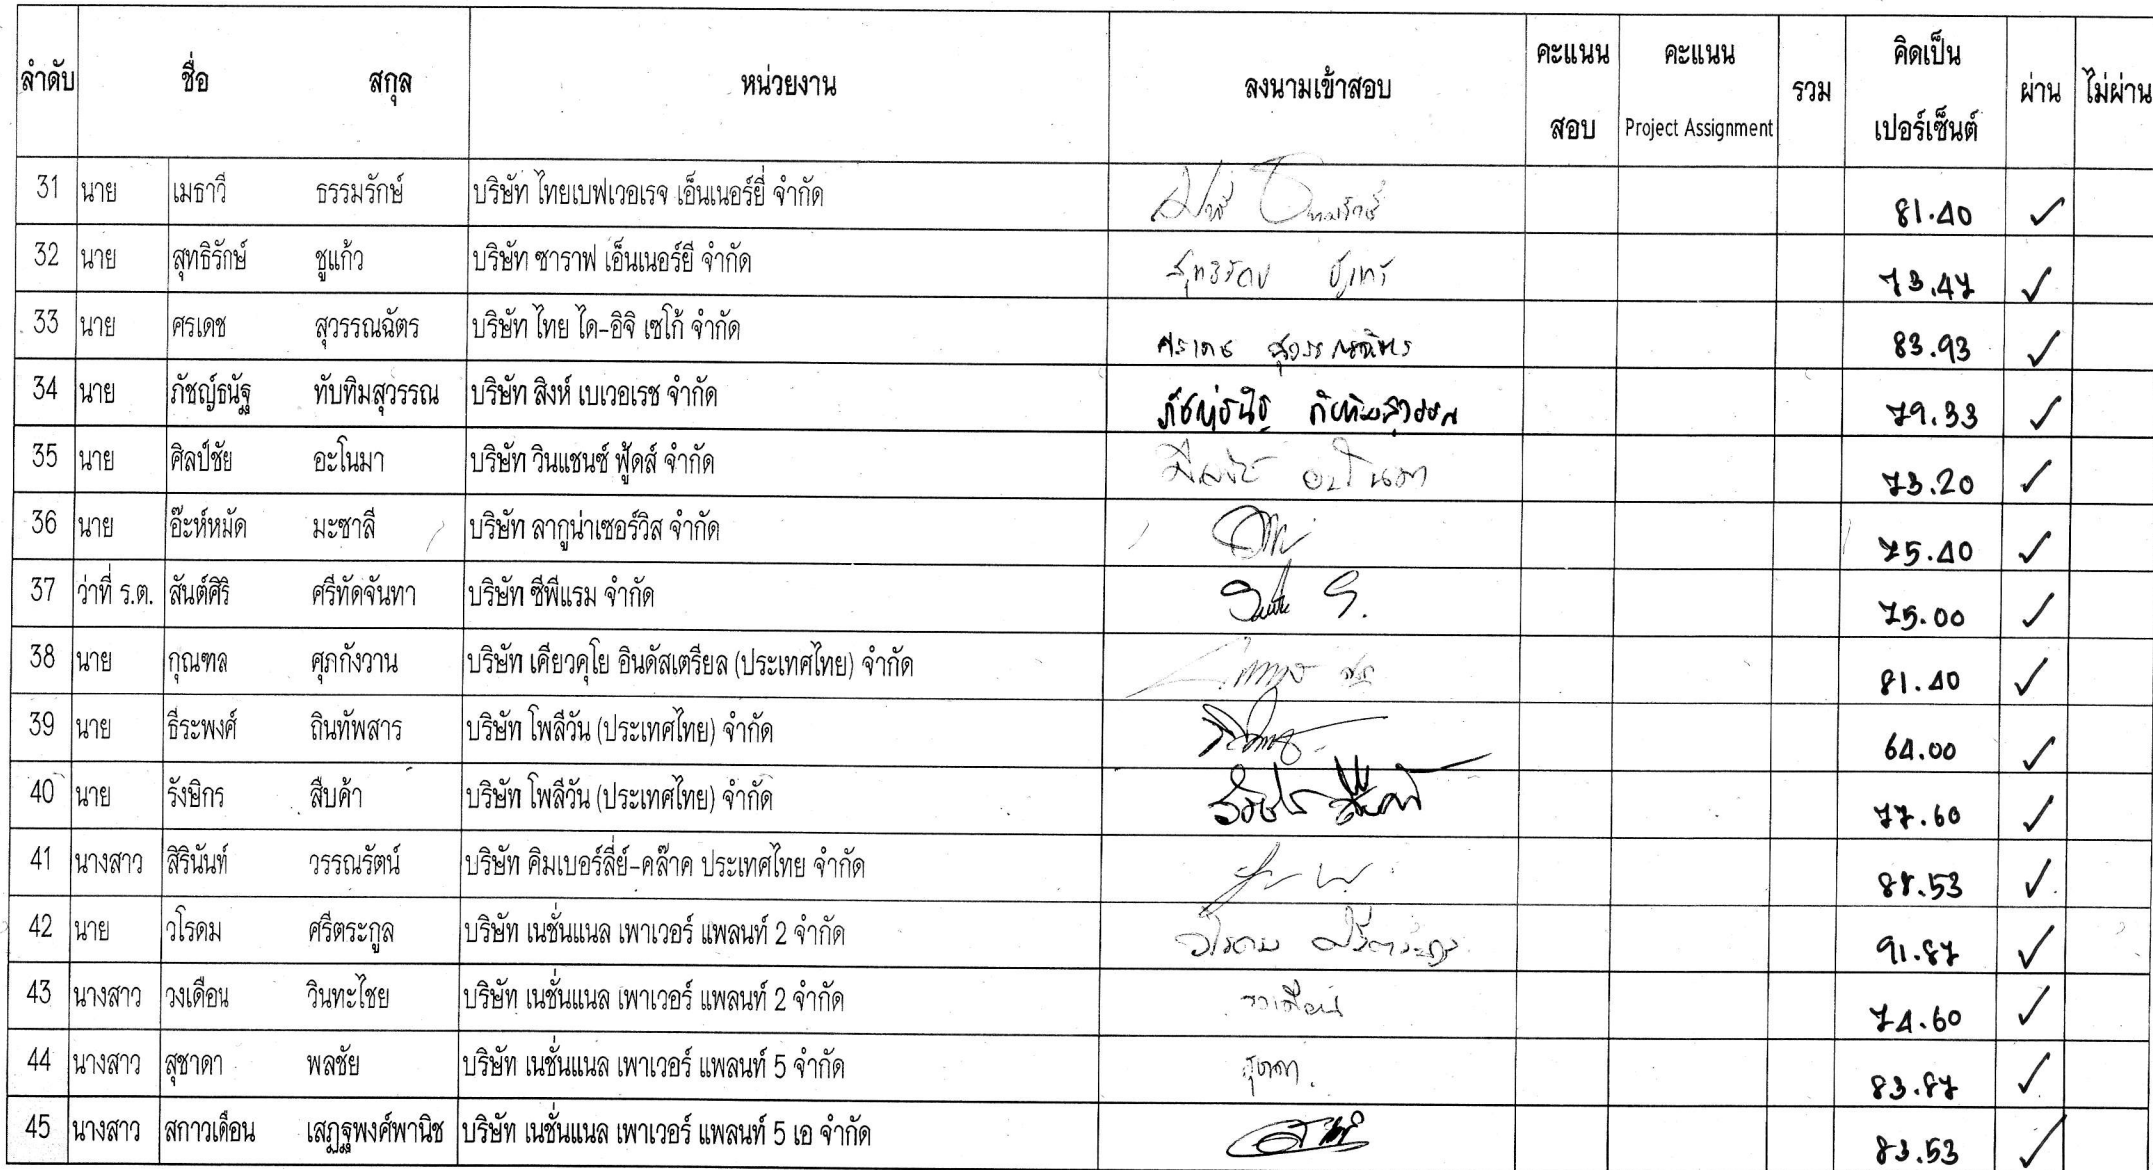 ลำดับ ชื่อ สกุล หน่วยงาน ลงนามเข้าสอบ คะแนน สอบ คะแนน Project Assignment รวม คิดเป็น เปอร์เซ็นต์ ผ่าน ไม่ผ่าน
31 นาย เมธาวี ธรรมรักษ์ บริษัท ไทยเบฟเวอเรจ เอ็นเนอร์ยี่ จำกัด 81.40 ✓
32 นาย สุทธิรักษ์ ชูแก้ว บริษัท ซาราฟ เอ็นเนอร์ยี จำกัด 73.47 ✓
33 นาย ศรเดช สุวรรณฉัตร บริษัท ไทย ได-อิจิ เซโก้ จำกัด ศรเดช สุวรรณฉัตร 83.93 ✓
34 นาย ภัชญ์ธนัฐ ทับทิมสุวรรณ บริษัท สิงห์ เบเวอเรช จำกัด ภัชญ์ธนัฐ ทับทิมสุวรรณ 79.33 ✓
35 นาย ศิลป์ชัย อะโนมา บริษัท วินแชนซ์ ฟู้ดส์ จำกัด อะโนมา 73.20 ✓
36 นาย อ๊ะห์หมัด มะซาลี บริษัท ลากูน่าเซอร์วิส จำกัด 75.40 ✓
37 ว่าที่ ร.ต. สันต์ศิริ ศรีทัดจันทา บริษัท ซีพีแรม จำกัด 75.00 ✓
38 นาย กุณฑล ศุภกังวาน บริษัท เคียวคุโย อินดัสเตรียล (ประเทศไทย) จำกัด 81.40 ✓
39 นาย ธีระพงศ์ ถินทัพสาร บริษัท โพลีวัน (ประเทศไทย) จำกัด 64.00 ✓
40 นาย รังษิกร สืบค้า บริษัท โพลีวัน (ประเทศไทย) จำกัด 77.60 ✓
41 นางสาว สิรินันท์ วรรณรัตน์ บริษัท คิมเบอร์ลี่ย์-คล๊าค ประเทศไทย จำกัด 88.53 ✓
42 นาย วโรดม ศรีตระกูล บริษัท เนชั่นแนล เพาเวอร์ แพลนท์ 2 จำกัด วโรดม ศรีตระกูล 91.87 ✓
43 นางสาว วงเดือน วินทะไชย บริษัท เนชั่นแนล เพาเวอร์ แพลนท์ 2 จำกัด วงเดือน 74.60 ✓
44 นางสาว สุชาดา พลชัย บริษัท เนชั่นแนล เพาเวอร์ แพลนท์ 5 จำกัด 83.87 ✓
45 นางสาว สกาวเดือน เสฏฐพงศ์พานิช บริษัท เนชั่นแนล เพาเวอร์ แพลนท์ 5 เอ จำกัด 83.53 ✓